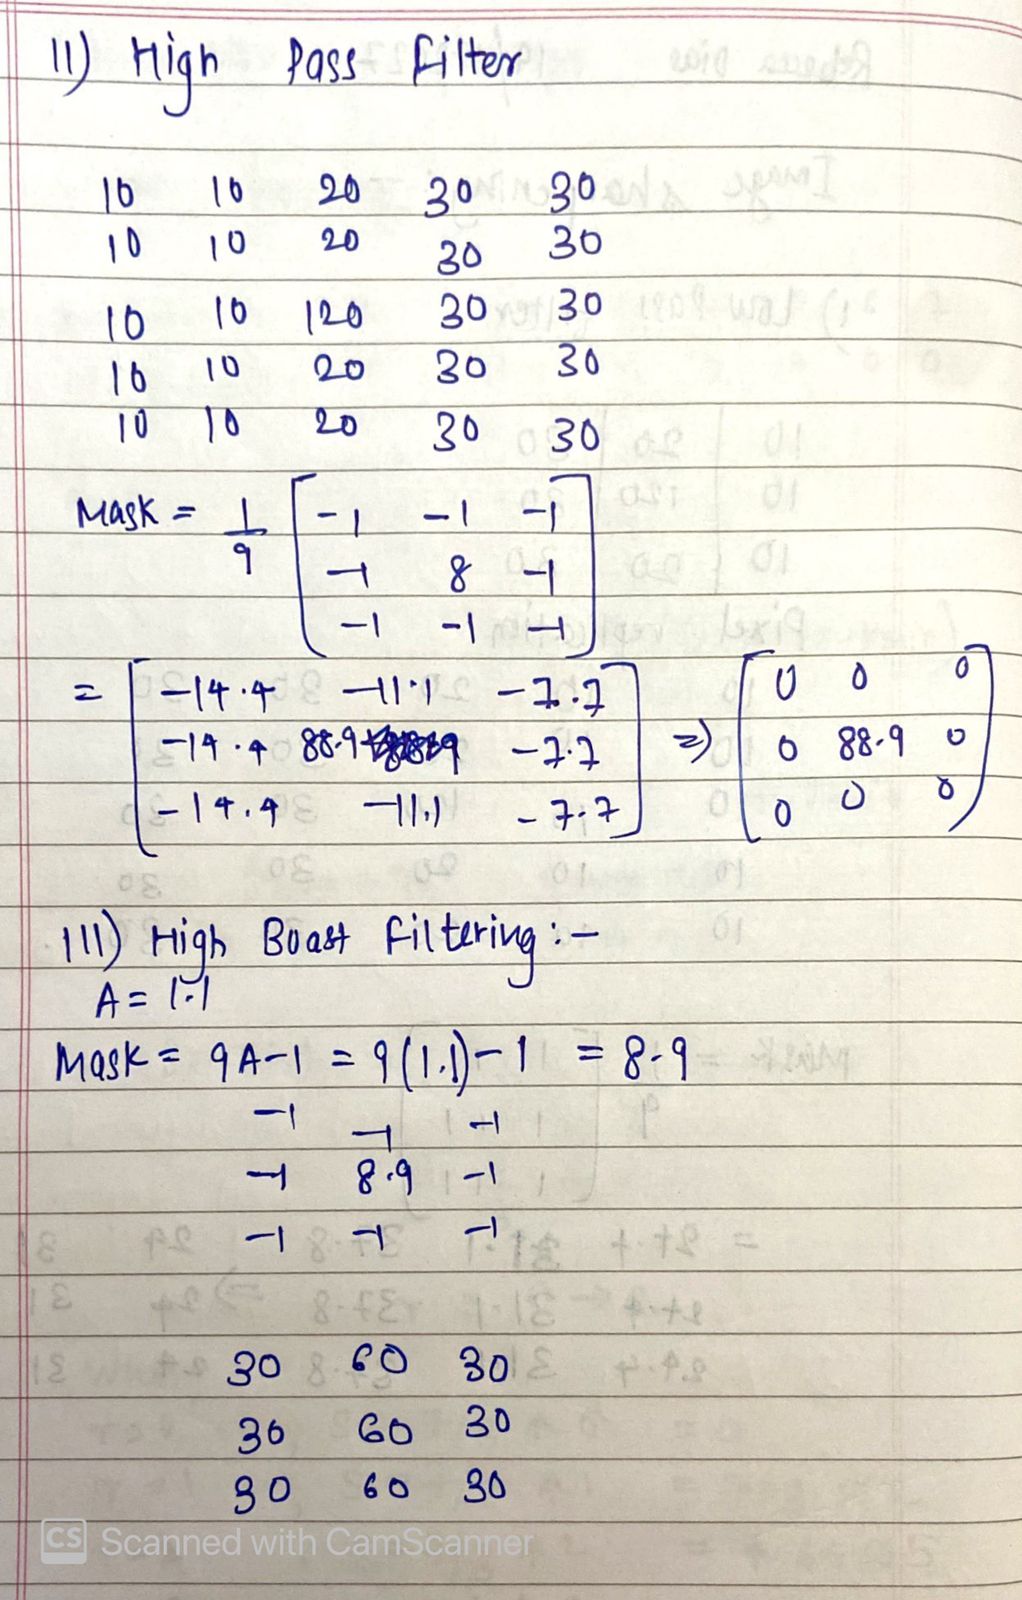 11) High Pass Filter
10 10 20 30 30
10 10 20 30 30
10 10 120 30 30
10 10 20 30 30
10 10 20 30 30
Mask = 1/9 [ -1 -1 -1
-1 8 -1
-1 -1 -1 ]
= [ -14.4 -11.1 -7.7 ] [ 0 0 0 ]
-14.4 88.9 -7.7 => 0 88.9 0
-14.4 -11.1 -7.7 0 0 0
111) High Boast Filtering :-
A = 1.1
Mask = 9A-1 = 9(1.1)-1 = 8.9
-1 -1 -1
-1 8.9 -1
-1 -1 -1
30 60 30
30 60 30
30 60 30
CS Scanned with CamScanner